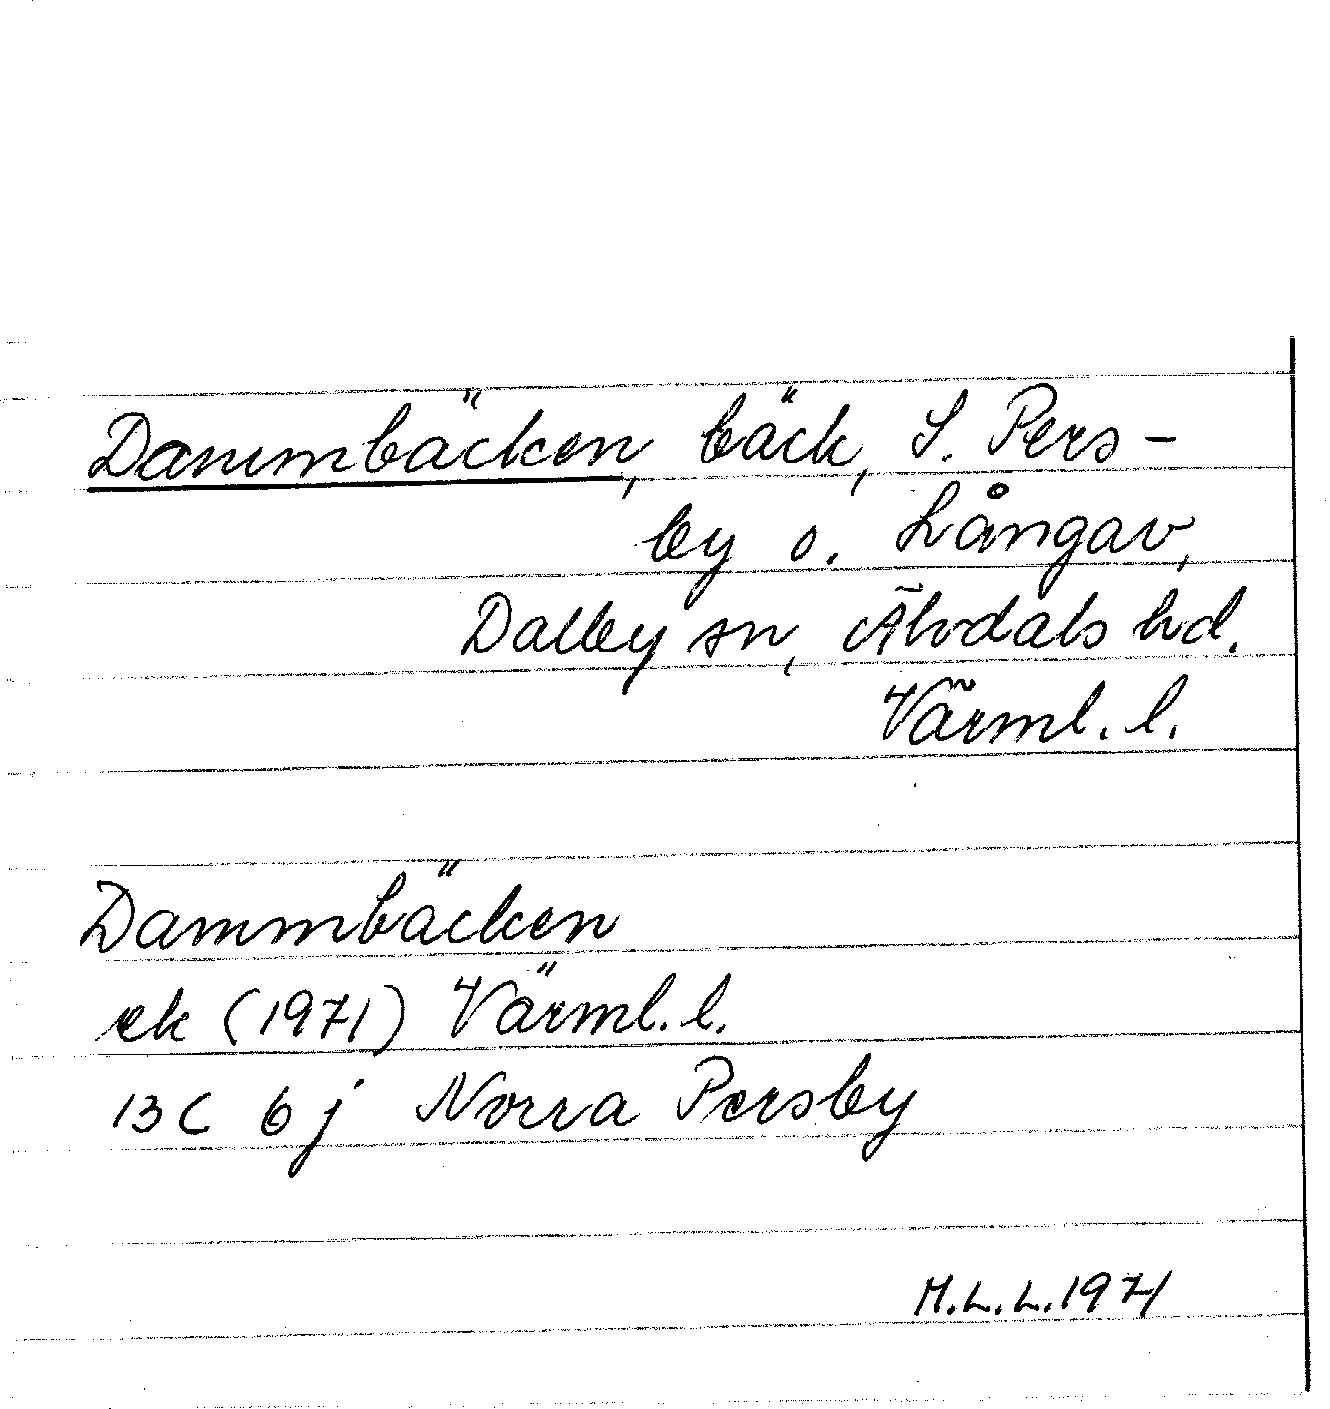 Dammbäcken, bäck, S. Pers-
by o. Långav,
Dalby sn, Älvdals hd.
Värml. l.
Dammbäcken
ek (1971) Värml. l.
13C 6j Norra Persby
M.L.L. 1971